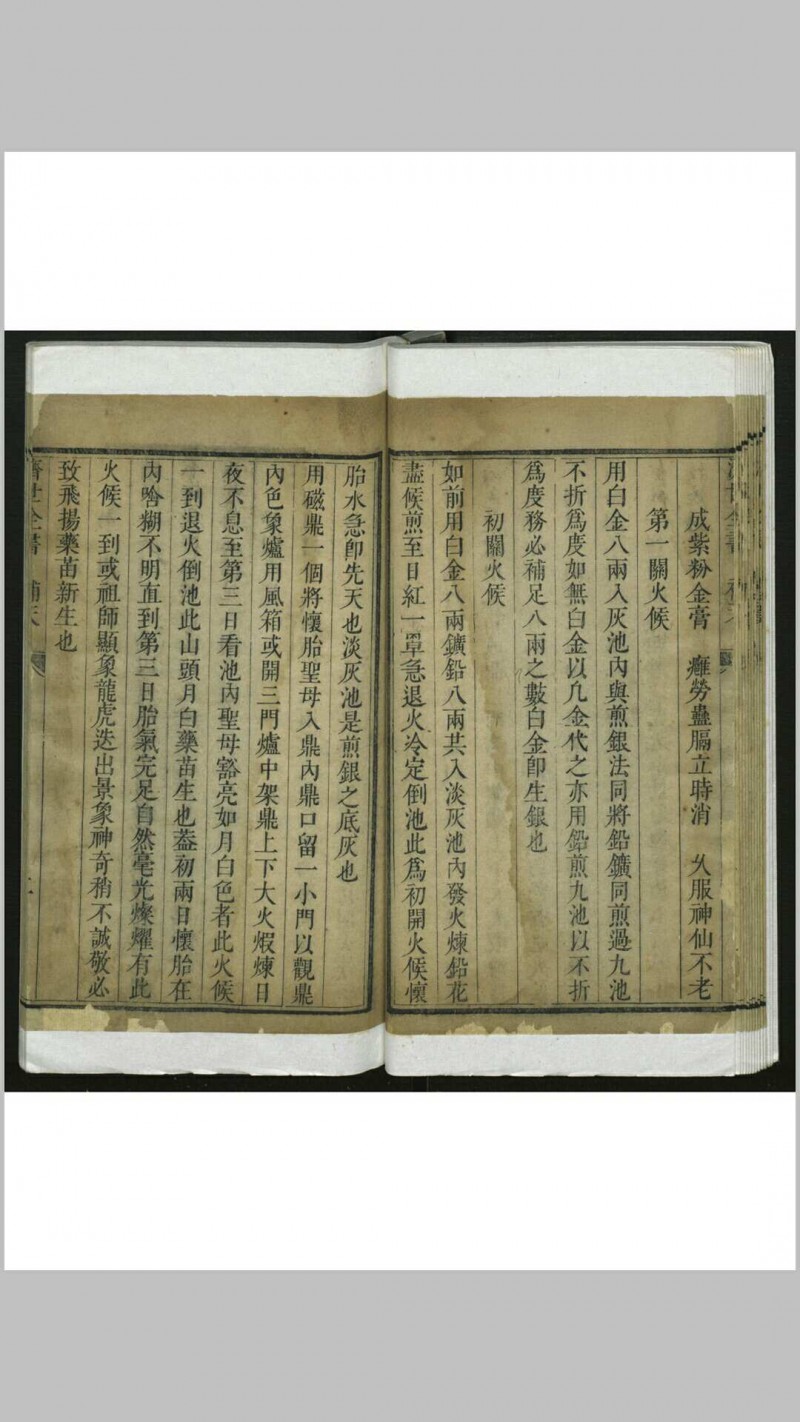 成紫粉金膏　癰勞蠱膈立時消　乆服神仙不老
第一關火候
用白金八兩入灰池內與煎銀法同將鉛鑛同煎過九池
不折爲度如無白金以凢金代之亦用鉛煎九池以不折
爲度務必補足八兩之數白金卽生銀也
初關火候
如前用白金八兩鑛鉛八兩共入淡灰池內發火煉鉛花
盡候煎至日紅一罩急退火冷定倒池此爲初開火候懷
胎水急卽先天也淡灰池是煎銀之底灰也
用磁鼎一個將懷胎聖母入鼎內鼎口留一小門以觀鼎
內色象爐用風箱或開三門爐中架鼎上下大火煆煉日
夜不息至第三日看池內聖母豁亮如月白色者此火候
一到退火倒池此山頭月白藥苗生也葢初兩日懷胎在
內唅糊不明直到第三日胎氣完足自然毫光燦耀有此
火候一到或祖師顯象龍虎迭出景象神奇稍不誠敬必
致飛揚藥苗新生也
濟世全書　補天